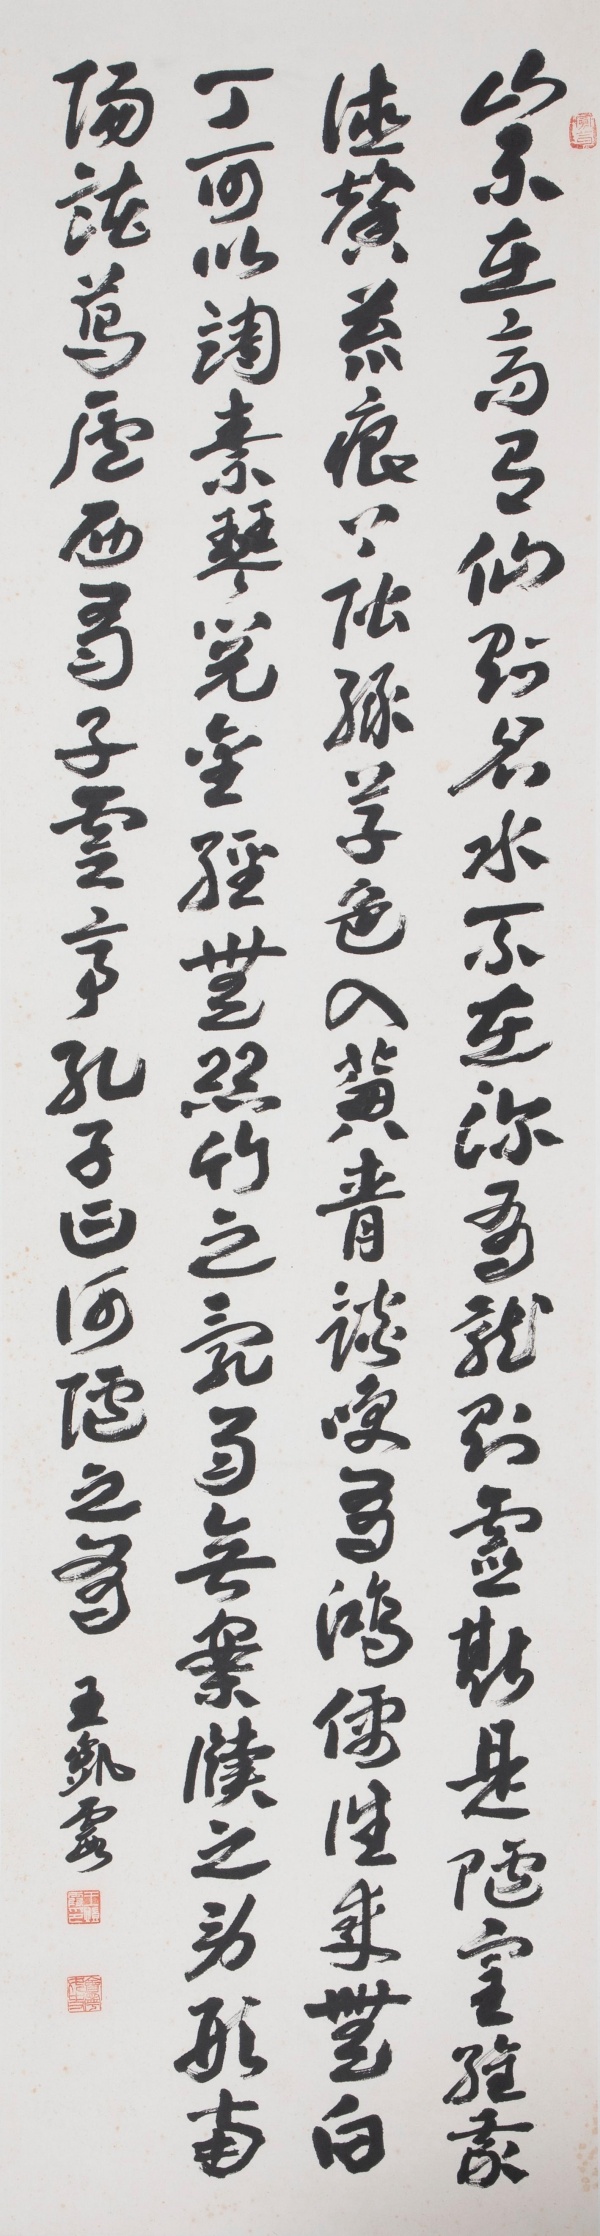 山不在高有仙則名水不在深有龍則靈斯是陋室維吾
德馨苔痕上階綠草色入簾青談笑有鴻儒往來無白
丁可以調素琴閱金經無絲竹之亂耳無案牘之勞形南
陽諸葛廬西蜀子雲亭孔子曰何陋之有 王凱霞